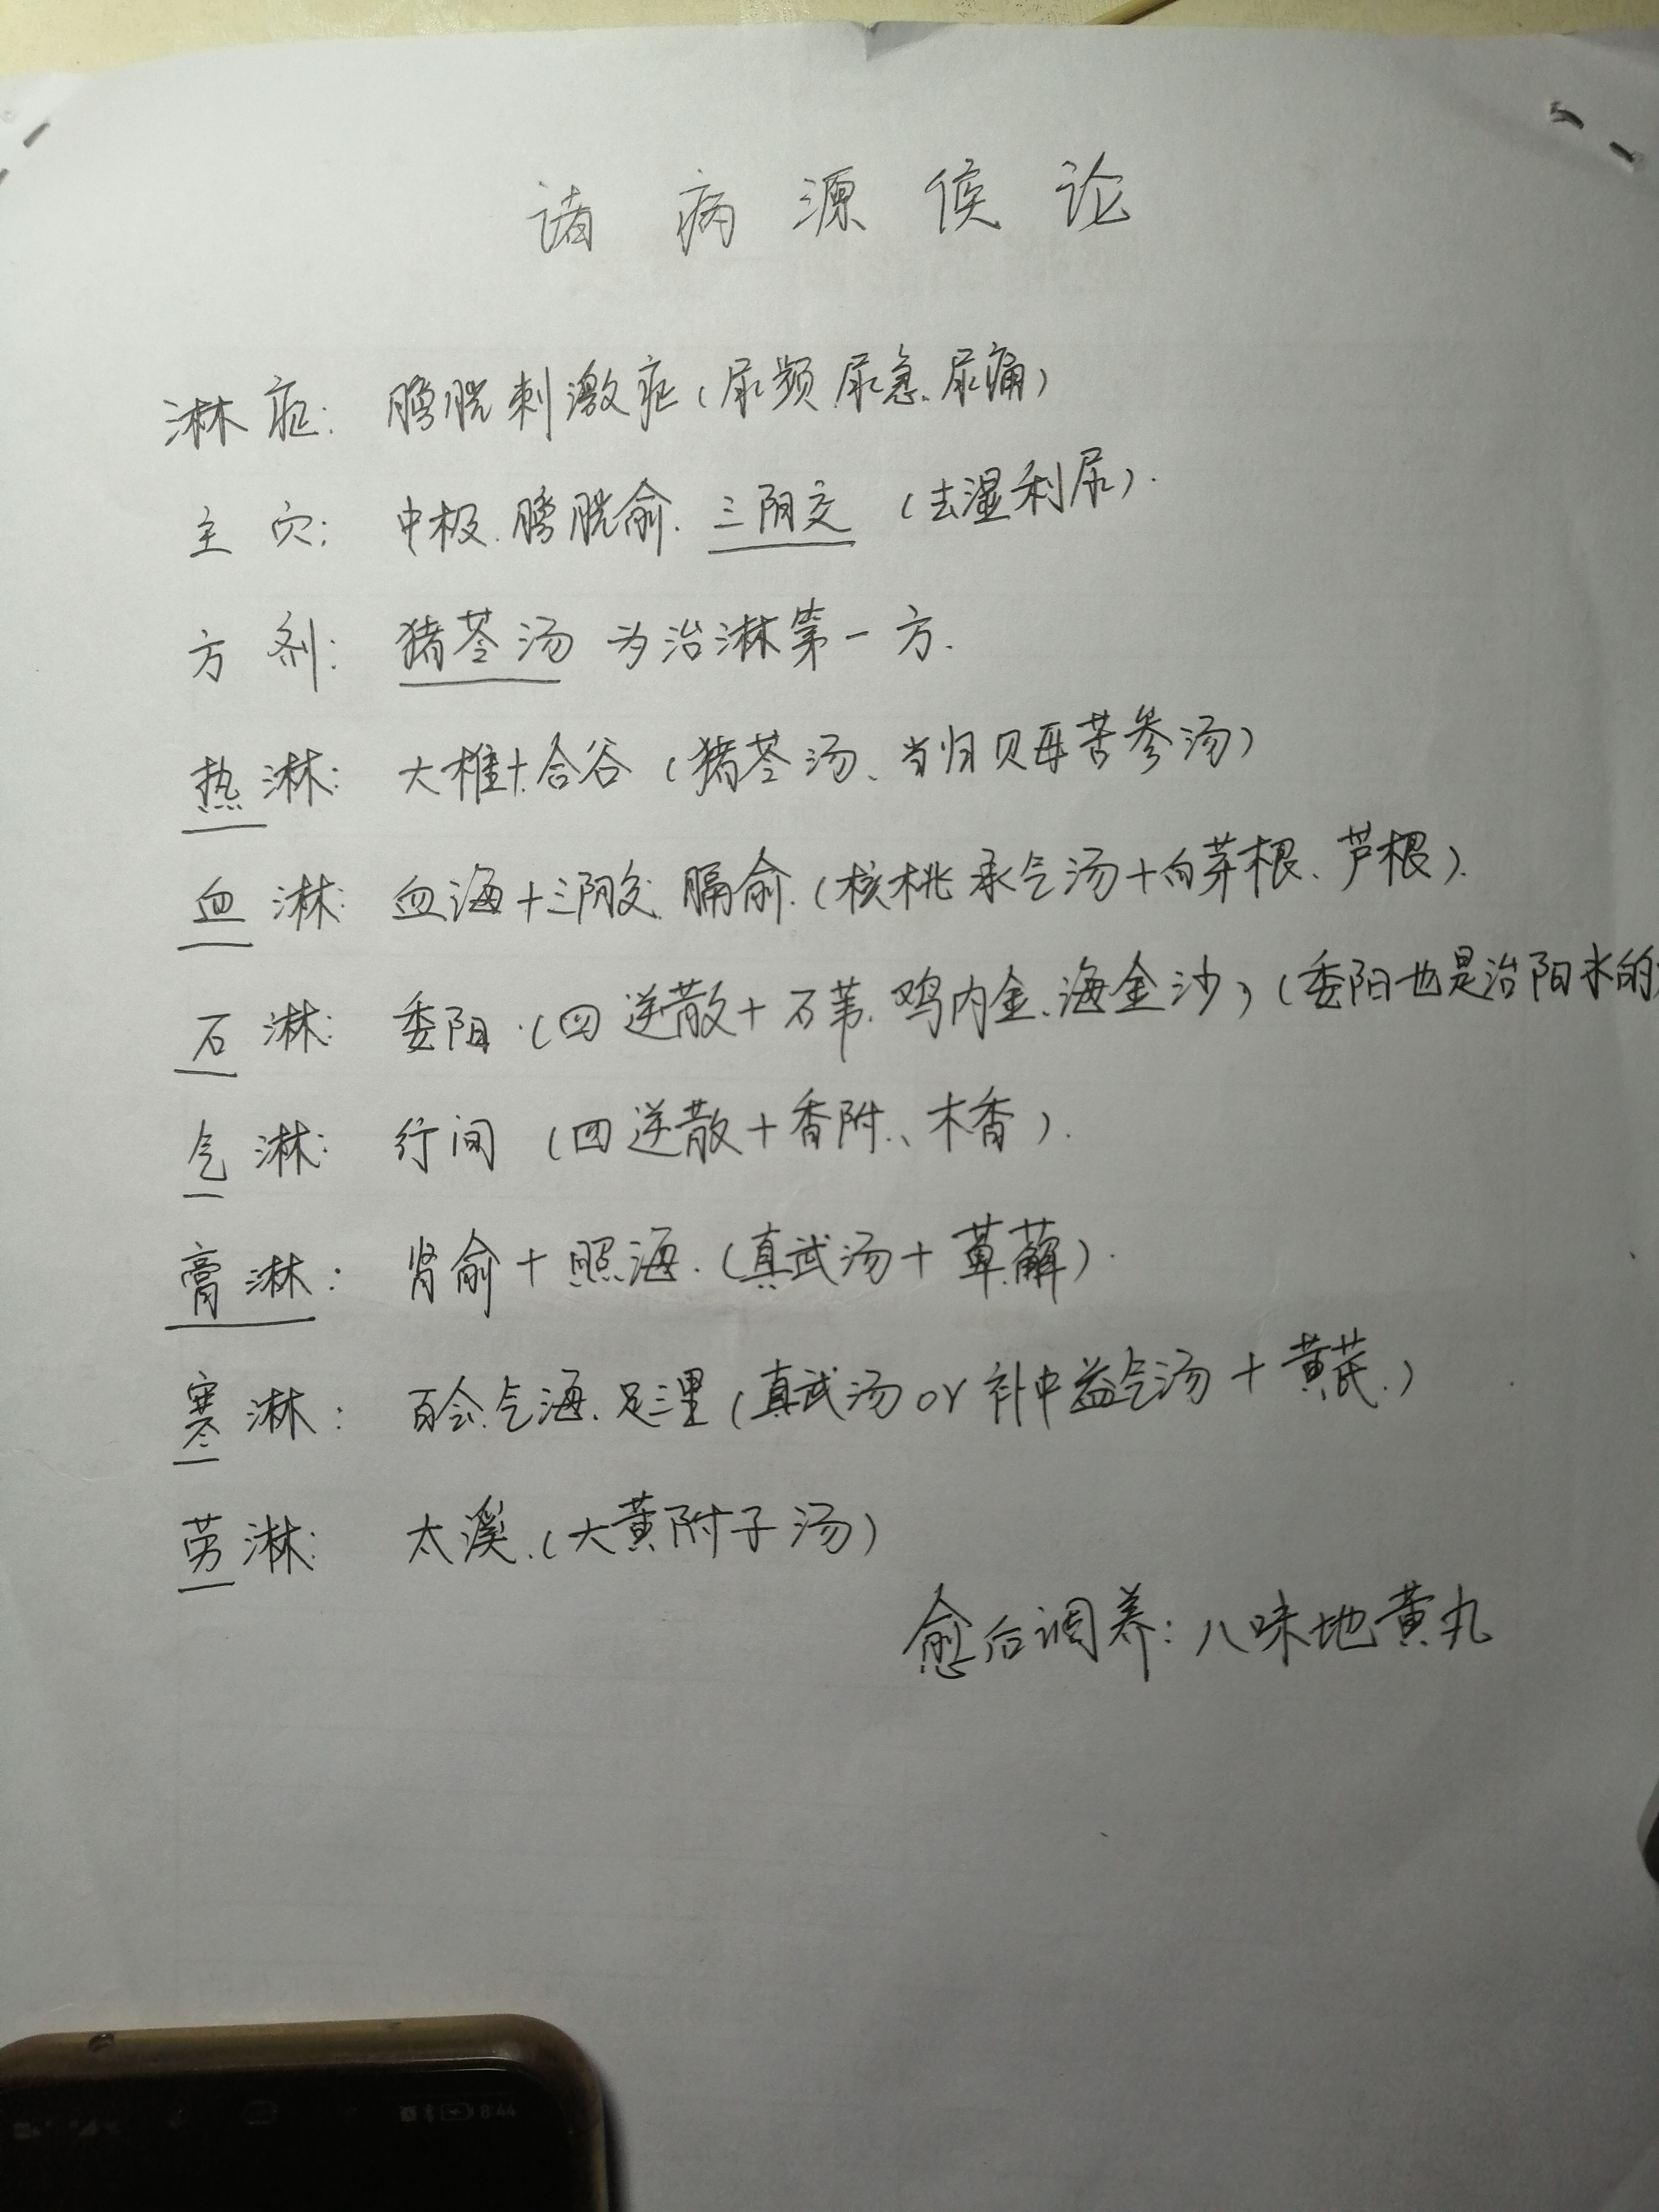 诸病源侯论
淋症：膀胱刺激症（尿频.尿急.尿痛）
主穴：中极.膀胱俞.三阴交（去湿利尿）.
方剂：猪苓汤 为治淋第一方.
热淋：大椎+合谷（猪苓汤、当归贝母苦参汤）
血淋：血海+三阴交.膈俞.（核桃承气汤+白茅根、芦根）.
石淋：委阳.（四逆散+石苇.鸡内金.海金沙）（委阳也是治阳水的
气淋：行间（四逆散+香附、木香）.
膏淋：肾俞+照海.（真武汤+萆薢）.
寒淋：百会.气海.足三里（真武汤or补中益气汤+黄芪.）
劳淋：太溪.（大黄附子汤）
愈后调养：八味地黄丸
8:44